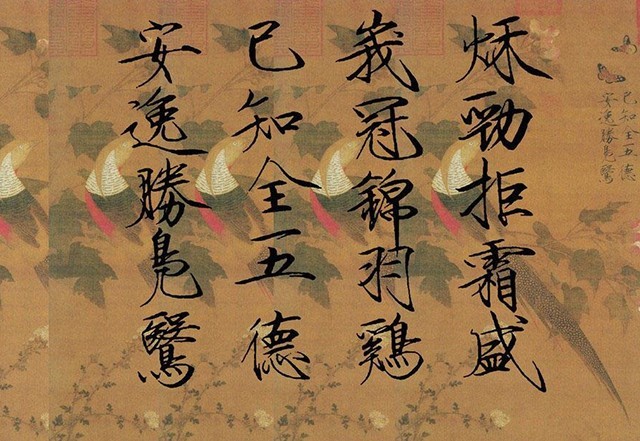 秋勁拒霜盛
峩冠錦羽鷄
已知全五德
安逸勝鳧鷖
已知全五德
安逸勝鳧鷖